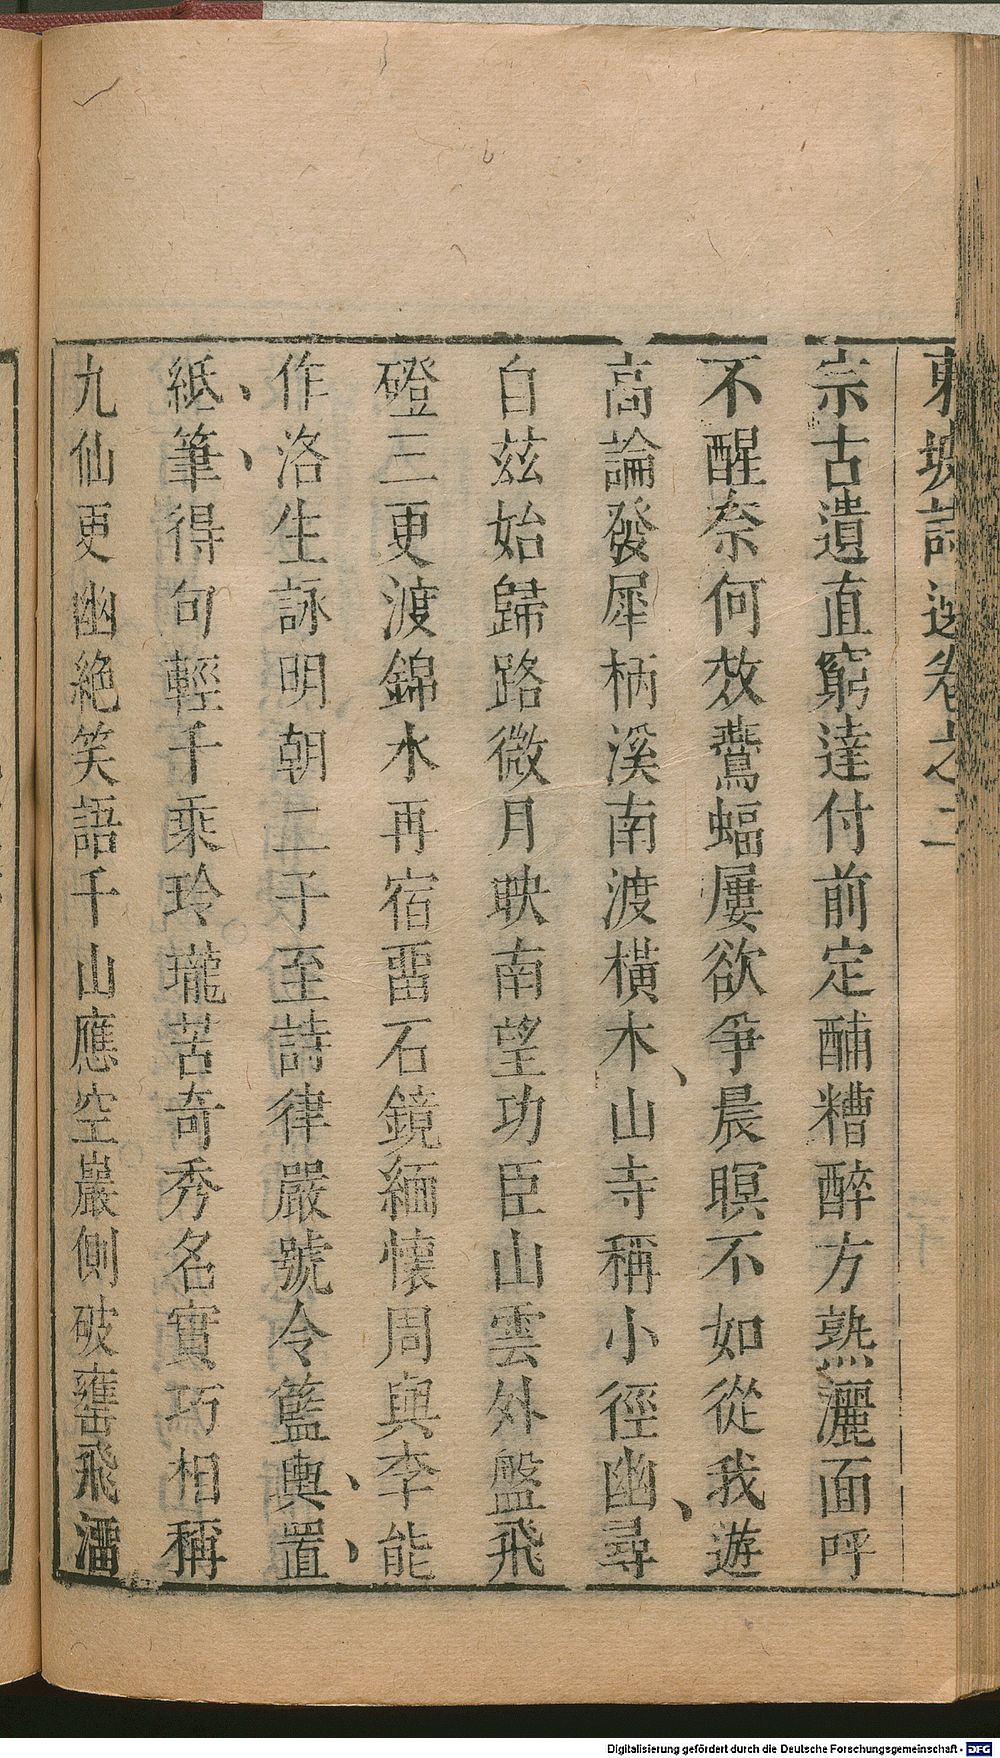 東坡詩選卷之二
宗古遺直窮達付前定餔糟醉方熟灑面呼
不醒奈何效鷰蝠屢欲爭晨暝不如從我遊
高論發犀柄溪南渡橫木山寺稱小徑幽尋
自茲始歸路微月映南望功臣山雲外盤飛
磴三更渡錦水再宿畱石鏡緬懷周與李能
作洛生詠明朝二子至詩律嚴號令籃輿置
紙筆得句輕千乘玲瓏苦奇秀名實巧相稱
九仙更幽絶笑語千山應空巖側破甕飛溜
Digitalisierung gefördert durch die Deutsche Forschungsgemeinschaft - DFG